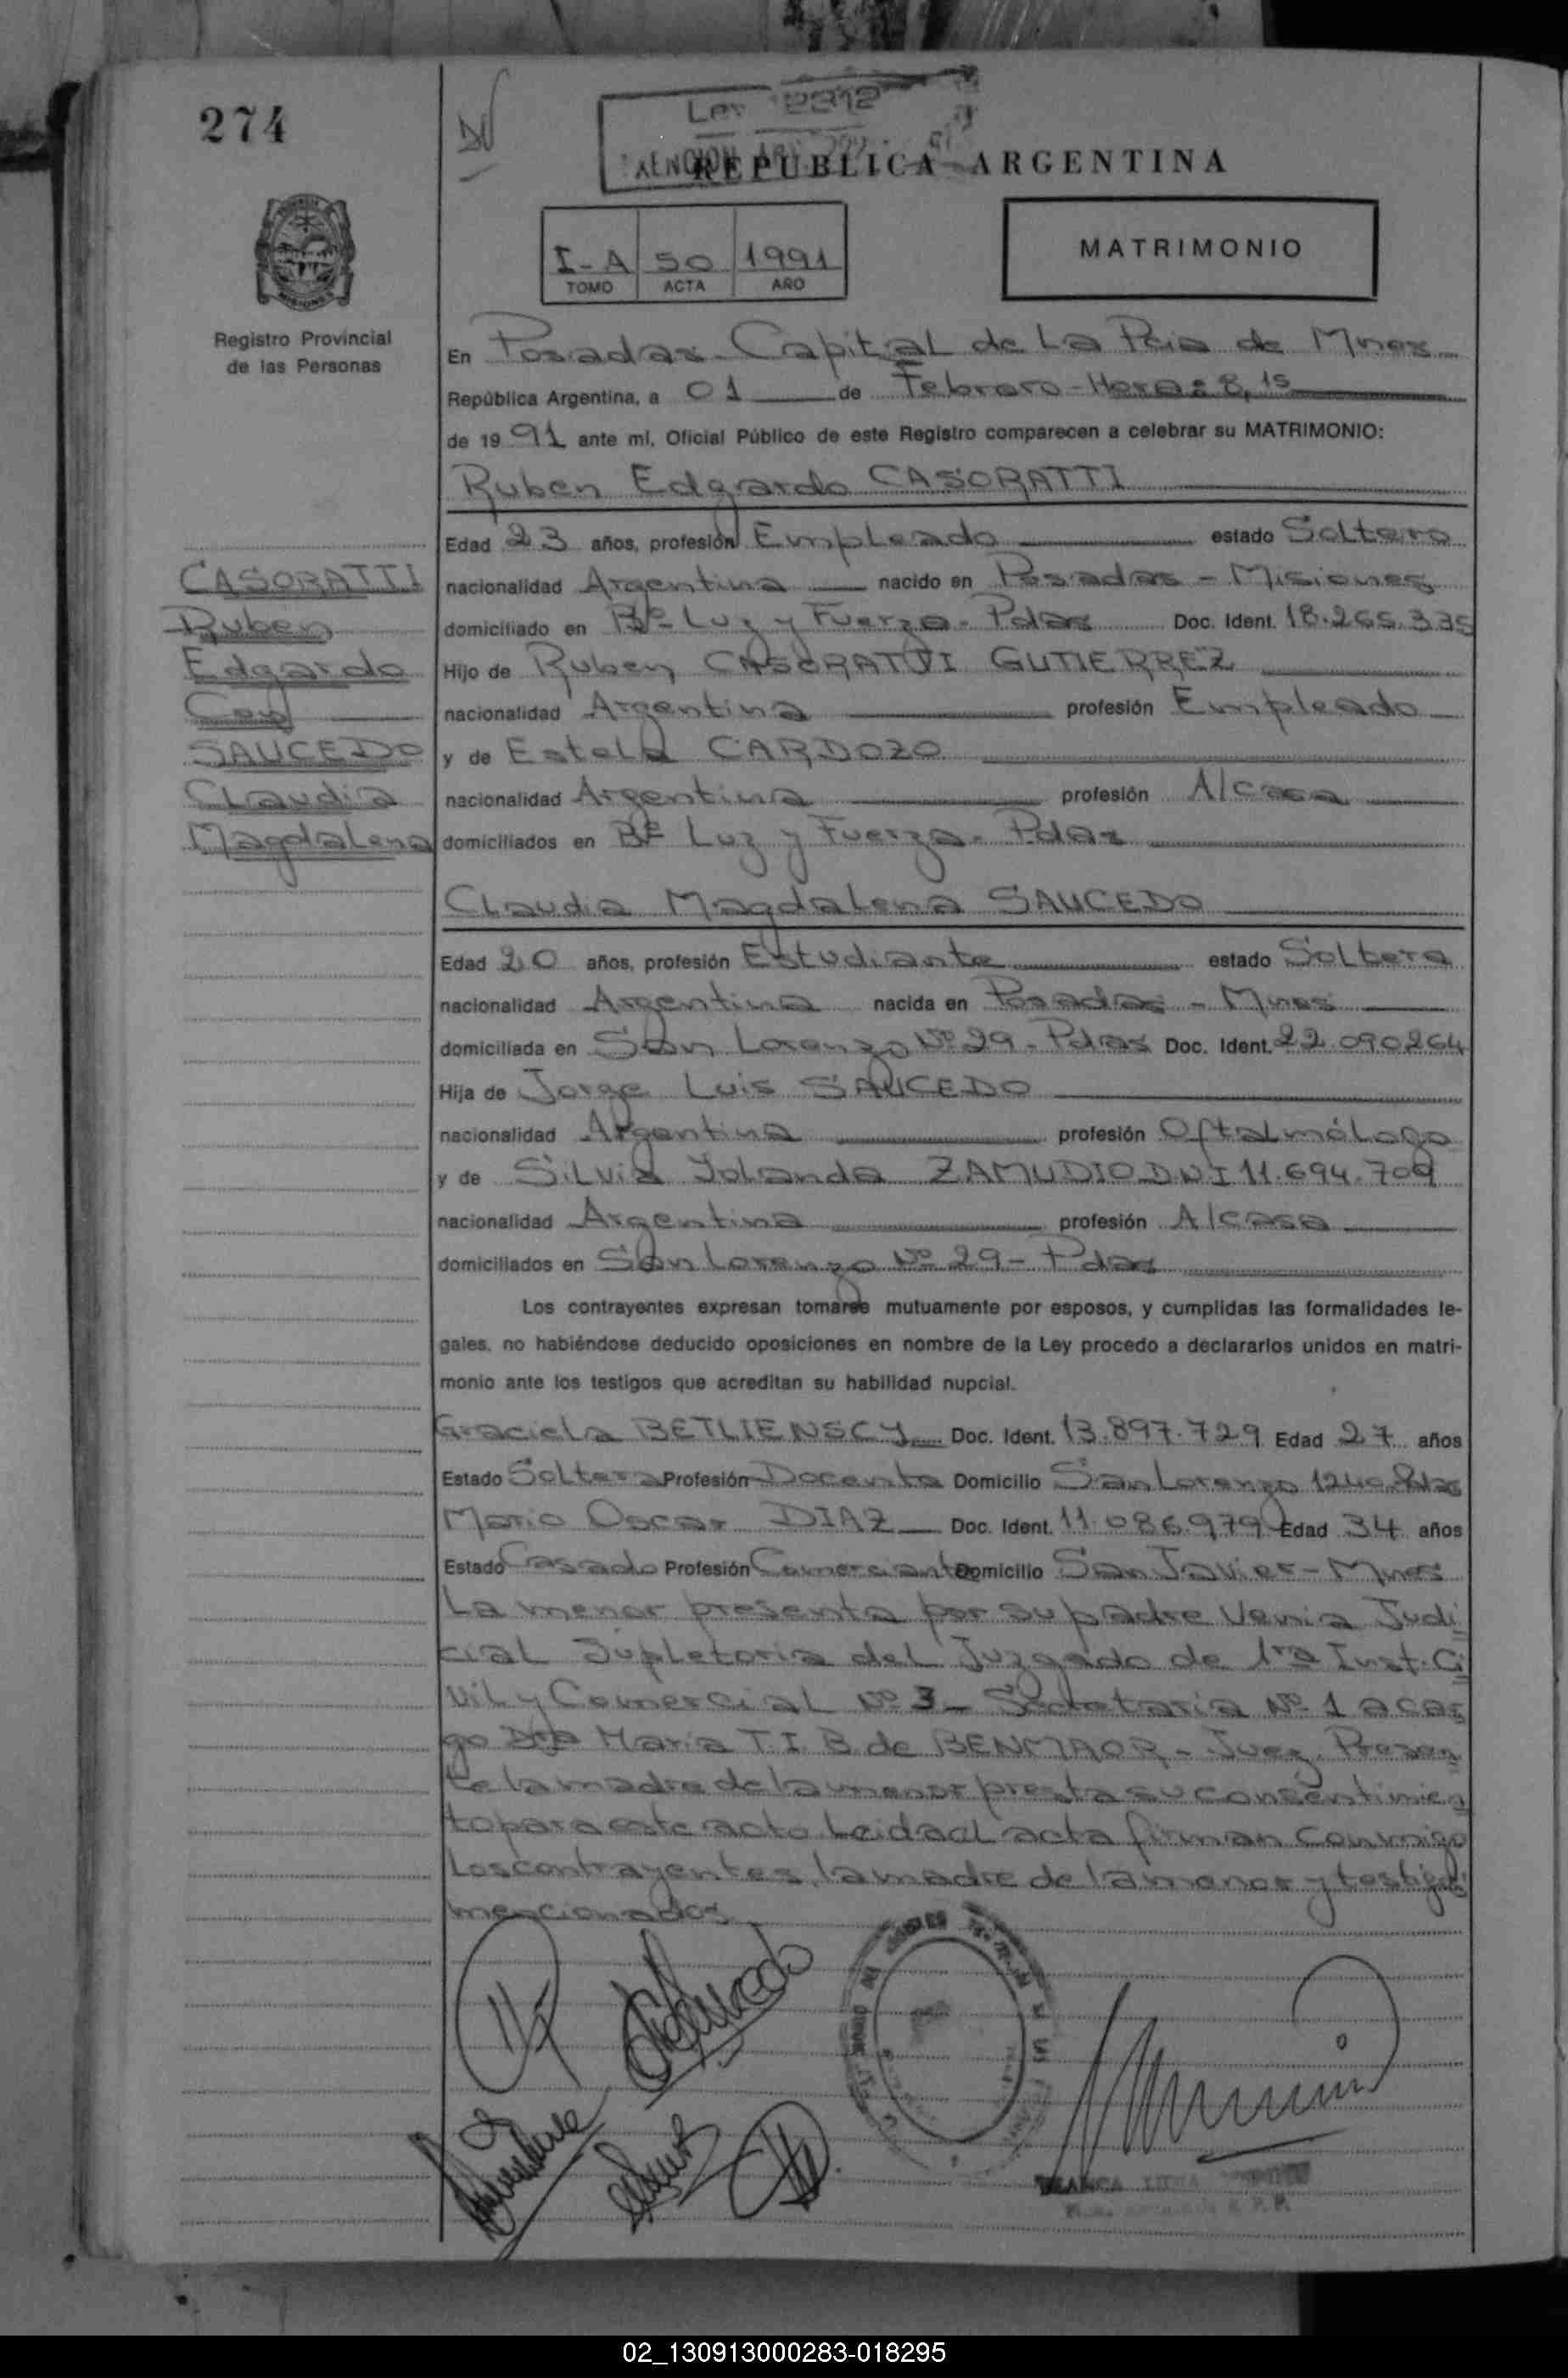 274
Ley 2312
REPUBLICA ARGENTINA
I-A 50 1991
TOMO ACTA AÑO
MATRIMONIO
Registro Provincial
de las Personas
CASORATTI
Ruben
Edgardo
Con
SAUCEDO
Claudia
Magdalena
En Posadas - Capital de La Pcia de Mnes
República Argentina, a 01 de Febrero - Horas 8,15
de 1991 ante mí, Oficial Público de este Registro comparecen a celebrar su MATRIMONIO:
Ruben Edgardo CASORATTI
Edad 23 años, profesión Empleado estado Soltero
nacionalidad Argentina nacido en Posadas - Misiones
domiciliado en Bº Luz y Fuerza - Pdas Doc. Ident. 18.265.335
Hijo de Ruben CASORATTI GUTIERREZ
nacionalidad Argentina profesión Empleado
y de Estela CARDOZO
nacionalidad Argentina profesión A/casa
domiciliados en Bº Luz y Fuerza - Pdas
Claudia Magdalena SAUCEDO
Edad 20 años, profesión Estudiante estado Soltera
nacionalidad Argentina nacida en Posadas - Mnes
domiciliada en San Lorenzo Nº 29 - Pdas Doc. Ident. 22.090264
Hija de Jorge Luis SAUCEDO
nacionalidad Argentina profesión Oftalmólogo
y de Silvia Yolanda ZAMUDIO DNI 11.694.709
nacionalidad Argentina profesión A/casa
domiciliados en San Lorenzo Nº 29 - Pdas
Los contrayentes expresan tomarse mutuamente por esposos, y cumplidas las formalidades le-
gales, no habiéndose deducido oposiciones en nombre de la Ley procedo a declararlos unidos en matri-
monio ante los testigos que acreditan su habilidad nupcial.
Graciela BETLIENSCY Doc. Ident. 13.897.729 Edad 27 años
Estado Soltera Profesión Docente Domicilio San Lorenzo 1240 Pdas
Mario Oscar DIAZ Doc. Ident. 11.086.979 Edad 34 años
Estado Casado Profesión Comerciante Domicilio San Javier - Mnes
La menor presenta por su padre Venia Judi
cial Supletoria del Juzgado de 1ra Inst. Ci
vil y Comercial Nº 3 - Secretaria Nº 1 a car
go Dra Maria T. I. B. de BENMAOR - Juez. Presen
te la madre de la menor presta su consentimien
to para este acto. Leida el acta firman conmigo
los contrayentes, la madre de la menor y testigos
mencionados
BLANCA
02_130913000283-018295